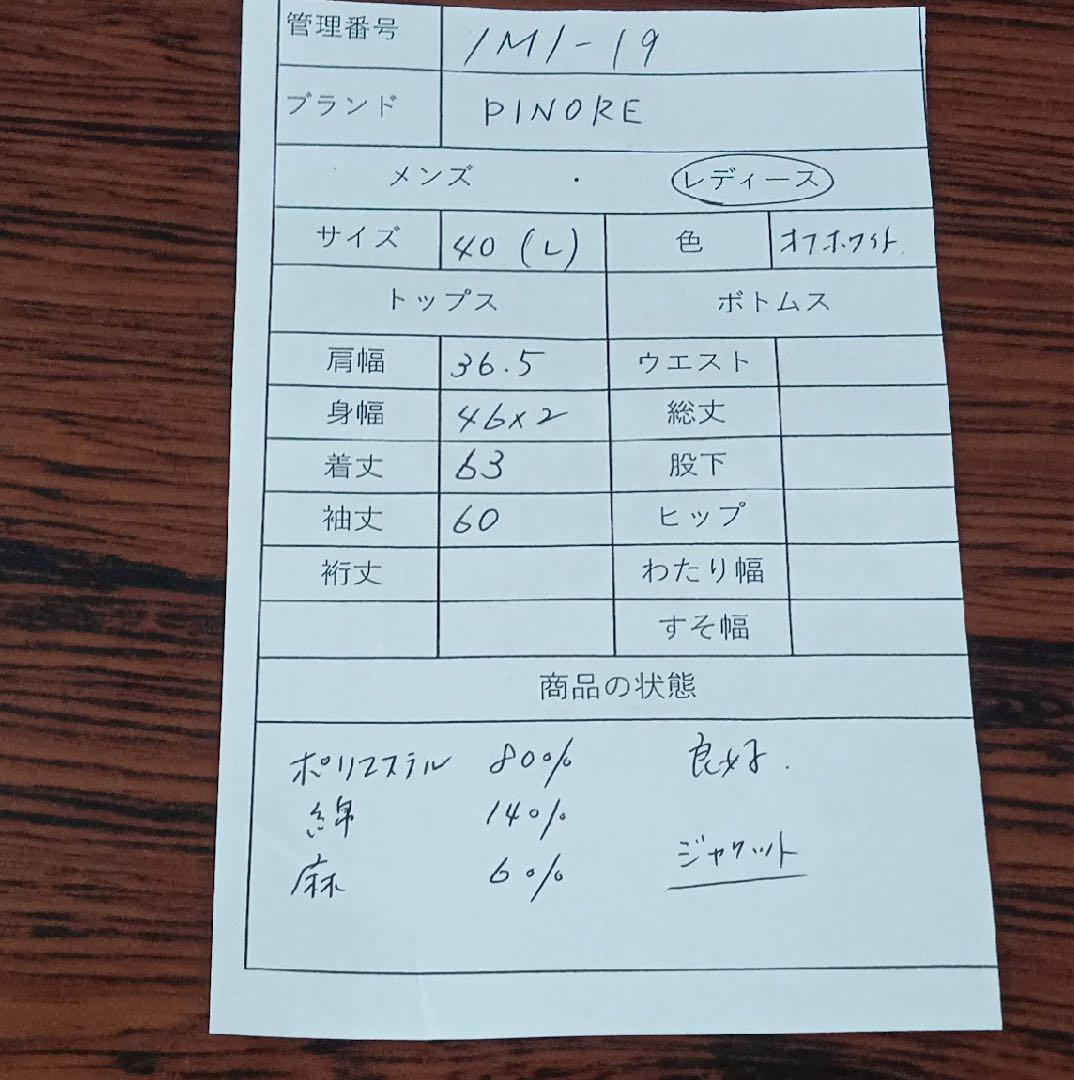 管理番号 1M1-19
ブランド PINORE
メンズ ・ レディース
サイズ 40 (L) 色 オフホワイト.
トップス ボトムス
肩幅 36.5 ウエスト
身幅 46×2 総丈
着丈 63 股下
袖丈 60 ヒップ
裄丈 わたり幅
すそ幅
商品の状態
ポリエステル 80% 良好.
綿 14%
麻 6% ジャケット